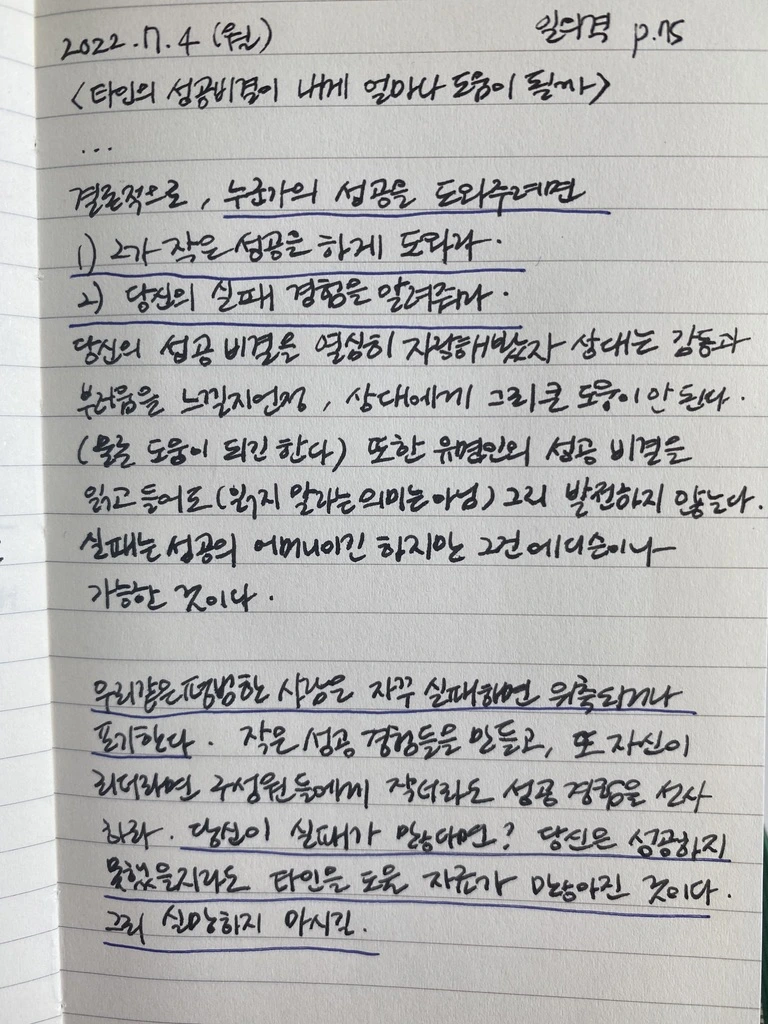 2022.7.4 (월) 일의격 p.75
<타인의 성공비결이 내게 얼마나 도움이 될까>
...
결론적으로, 누군가의 성공을 도와주려면
1) 그가 작은 성공을 하게 도와라.
2) 당신의 실패 경험을 알려줘라.
당신의 성공 비결을 열심히 자랑해봤자 상대는 감동과
부러움을 느낄지언정, 상대에게 그리 큰 도움이 안 된다.
(물론 도움이 되긴 한다) 또한 유명인의 성공 비결을
읽고 들어도 (읽지 말라는 의미는 아님) 그리 발전하지 않는다.
실패는 성공의 어머니이긴 하지만 그건 에디슨이나
가능한 것이다.
우리같은 평범한 사람은 자꾸 실패하면 위축되거나
포기한다. 작은 성공 경험들을 만들고, 또 자신이
리더라면 구성원들에게 작더라도 성공 경험을 선사
하라. 당신이 실패가 많다면? 당신은 성공하지
못했을지라도 타인을 도울 자료가 많아진 것이다.
그리 실망하지 마시길.